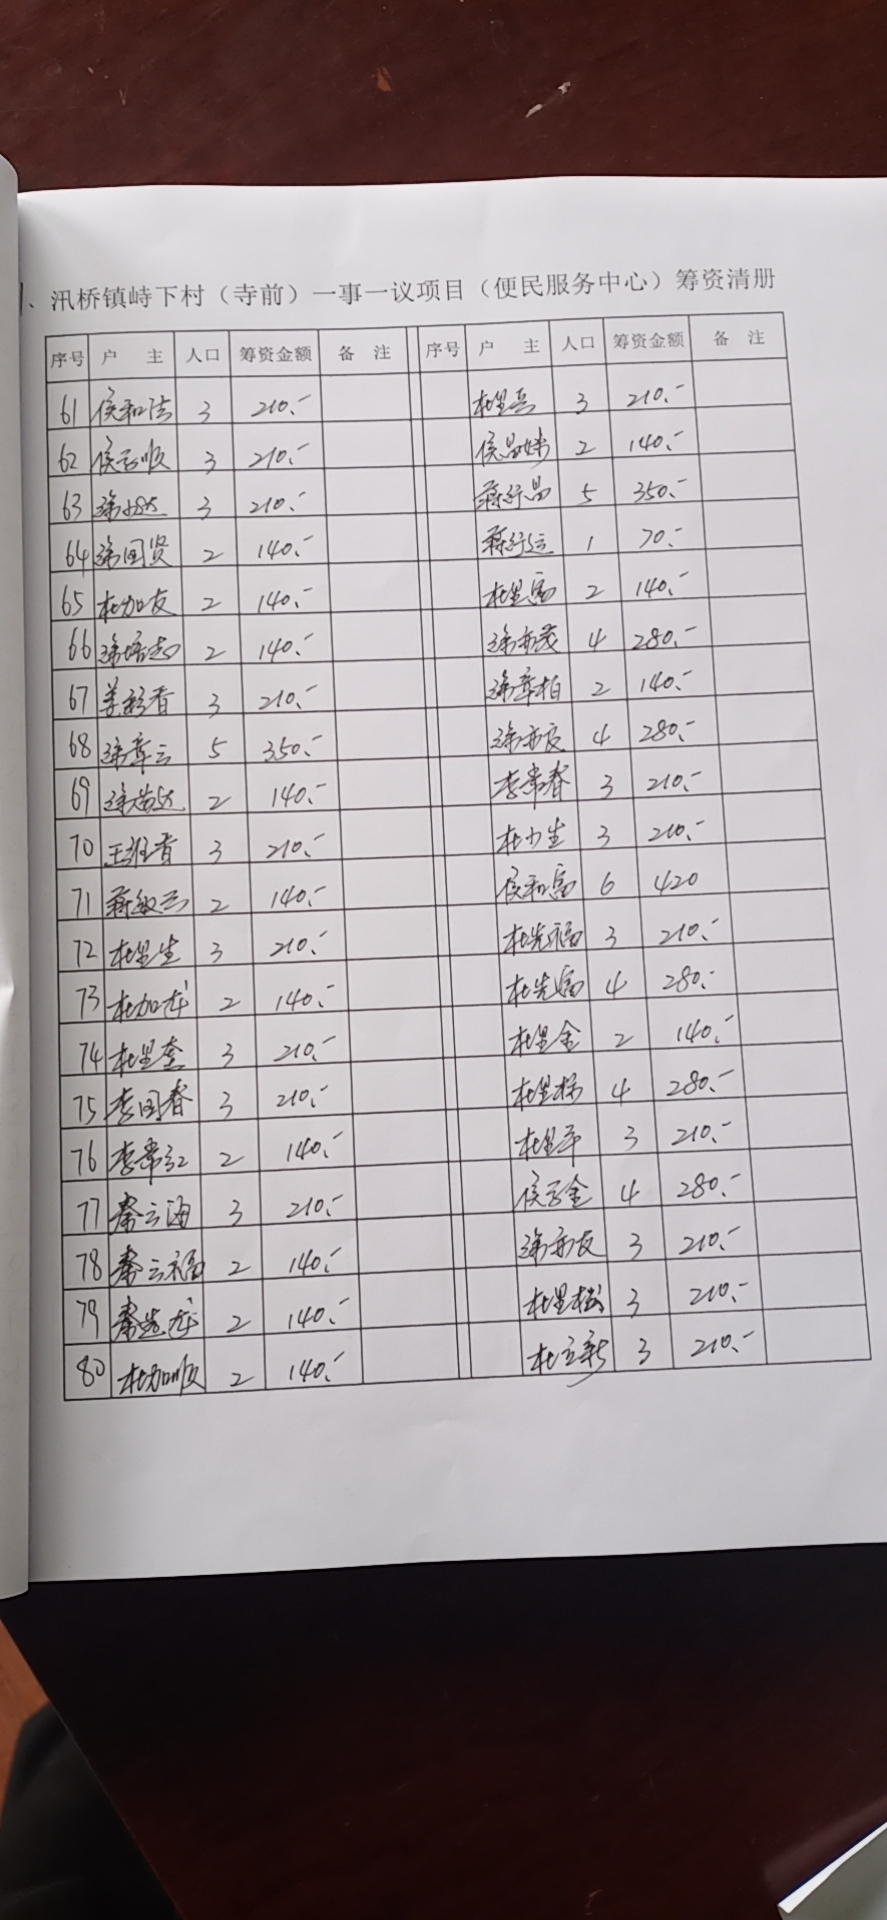 、汛桥镇峙下村（寺前）一事一议项目（便民服务中心）筹资清册
序号 户 主 人口 筹资金额 备 注 序号 户 主 人口 筹资金额 备 注
61 侯和法 3 210.- 杜里兵 3 210.-
62 侯云顺 3 210.- 侯昌娣 2 140.-
63 3 210.- 蒋行昌 5 350.-
64 涂国贤 2 140.- 蒋行运 1 70.-
65 杜加友 2 140.- 杜里富 2 140.-
66 涂培志 2 140.- 涂亦茂 4 280.-
67 姜彩香 3 210.- 涂章柏 2 140.-
68 涂章云 5 350.- 涂亦友 4 280.-
69 2 140.- 李常春 3 210.-
70 王雅香 3 210.- 杜小生 3 210.-
71 蒋敏云 2 140.- 侯和富 6 420
72 杜里生 3 210.- 杜先福 3 210.-
73 杜加龙 2 140.- 杜先富 4 280.-
74 杜里奎 3 210.- 杜里金 2 140.-
75 李国春 3 210.- 杜里杨 4 280.-
76 李常红 2 140.- 杜里平 3 210.-
77 秦云海 3 210.- 侯云金 4 280.-
78 秦云福 2 140.- 涂亦友 3 210.-
79 秦先龙 2 140.- 杜里松 3 210.-
80 杜加顺 2 140.- 杜立新 3 210.-